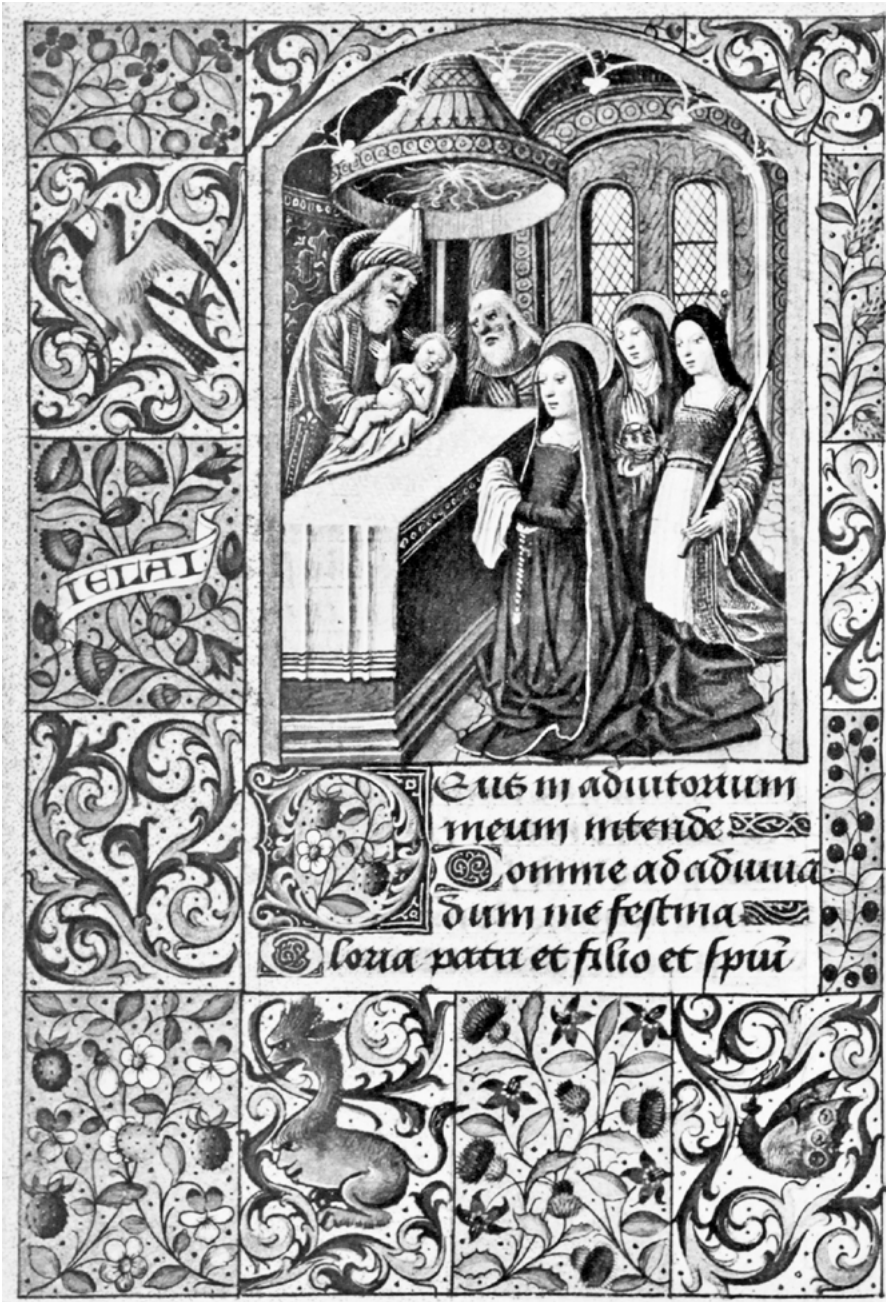 IELAI
DEus in adiutorium
meum intende
Domine ad adiuuā
dum me festina
Gloria patri et filio et spiū